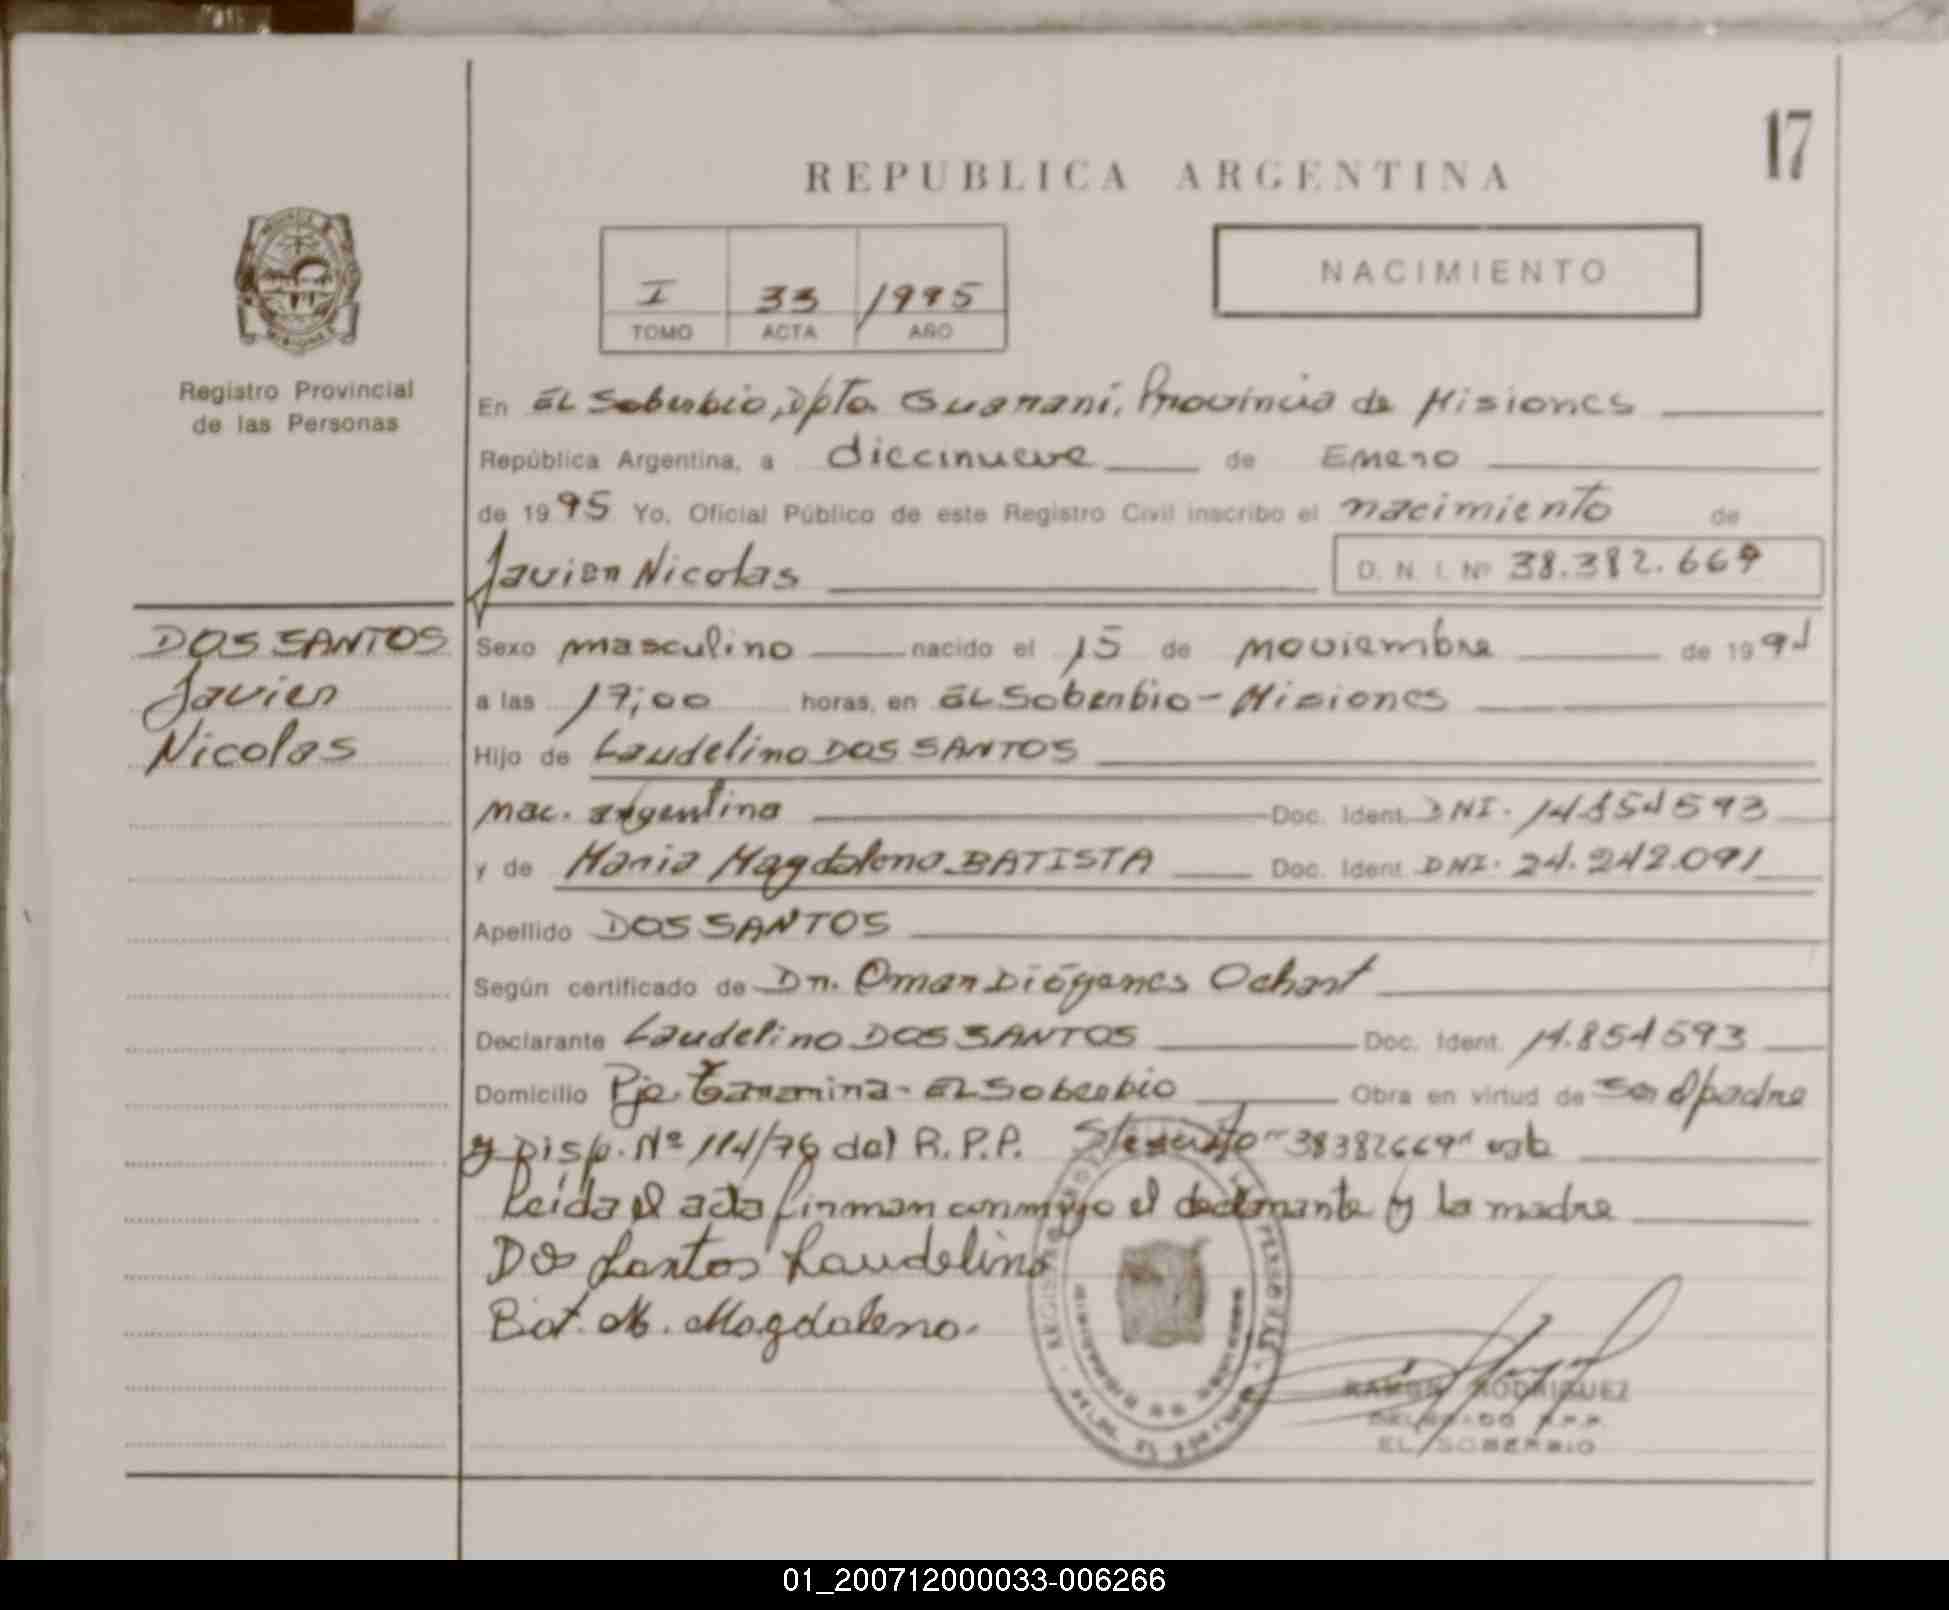 17
REPUBLICA ARGENTINA
I 33 1995
TOMO ACTA AÑO
NACIMIENTO
Registro Provincial
de las Personas
En El Soberbio, Dpto. Guaraní, Provincia de Misiones
República Argentina, a diecinueve de Enero
de 1995 Yo, Oficial Público de este Registro Civil inscribo el nacimiento de
Javier Nicolas D. N. I. Nº 38.382.669
DOS SANTOS
Javier
Nicolas
Sexo masculino nacido el 15 de noviembre de 1994
a las 17;00 horas, en El Soberbio - Misiones
Hijo de Laudelino DOS SANTOS
nac. argentina Doc. Ident. DNI. 14854593
y de Maria Magdalena BATISTA Doc. Ident. DNI. 24.242.091
Apellido DOS SANTOS
Según certificado de Dr. Omar Diógenes
Declarante Laudelino DOS SANTOS Doc. Ident. 14.854593
Domicilio Pje. El Soberbio Obra en virtud de ser el padre
y Disp. Nº 114/76 del R.P.P. "38382669" vale
Leida el acta firman conmigo el declarante y la madre
Dos Santos Laudelino
Bat. M. Magdalena.
RAMON RODRIGUEZ
DELEGADO R.P.P.
EL SOBERBIO
01_200712000033-006266